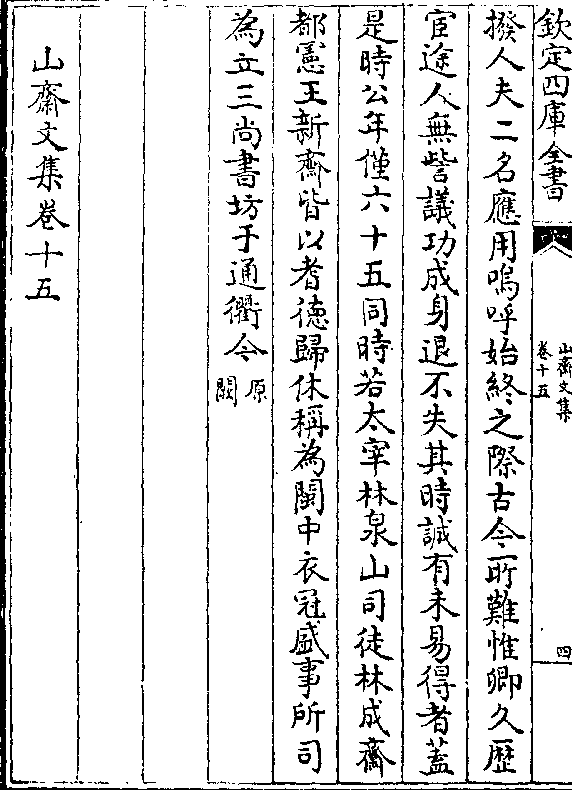 欽定四庫全書
山齋文集
卷十五
四
撥人夫二名應用嗚呼始終之際古今所難惟卿久歴
宦途人無訾議功成身退不失其時誠有未易得者葢
是時公年僅六十五同時若太宰林泉山司徒林成齋
都憲王新齋皆以耆德歸休稱為閩中衣冠盛事所司
為立三尚書坊于通衢今原闕
山齋文集卷十五